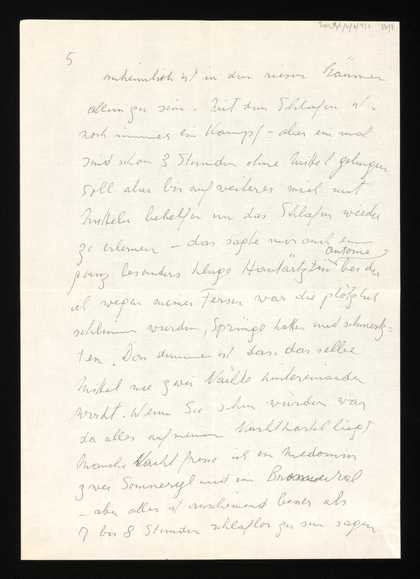 5
unheimlich ist in den riesen Räumen
allein zu sein. Mit dem Schlafen ist
noch immer ein Kampf – aber ein mal
sind schon 3 Stunden ohne Mittel gelungen
soll aber bis auf weiteres mich mit
Mitteln behelfen um das Schlafen wieder
zu erlernen – das sagte mir auch eine
ganz besonders kluge Hautärztin bei der
ich wegen meiner Fersen war die plötzlich
schlimm wurden, Sprünge hatten und schmerz=
ten. Das dumme ist dass das selbe
Mittel nie zwei Nächte hintereinander
wirkt. Wenn Sie sehen würden was
da alles auf meinem Nachtkastel liegt
Manche Nacht fress ich ein Medomin
zwei Somneryl und ein
– aber alles ist anscheinend besser als
7 bis 8 Stunden schlaflos zu sein sagen